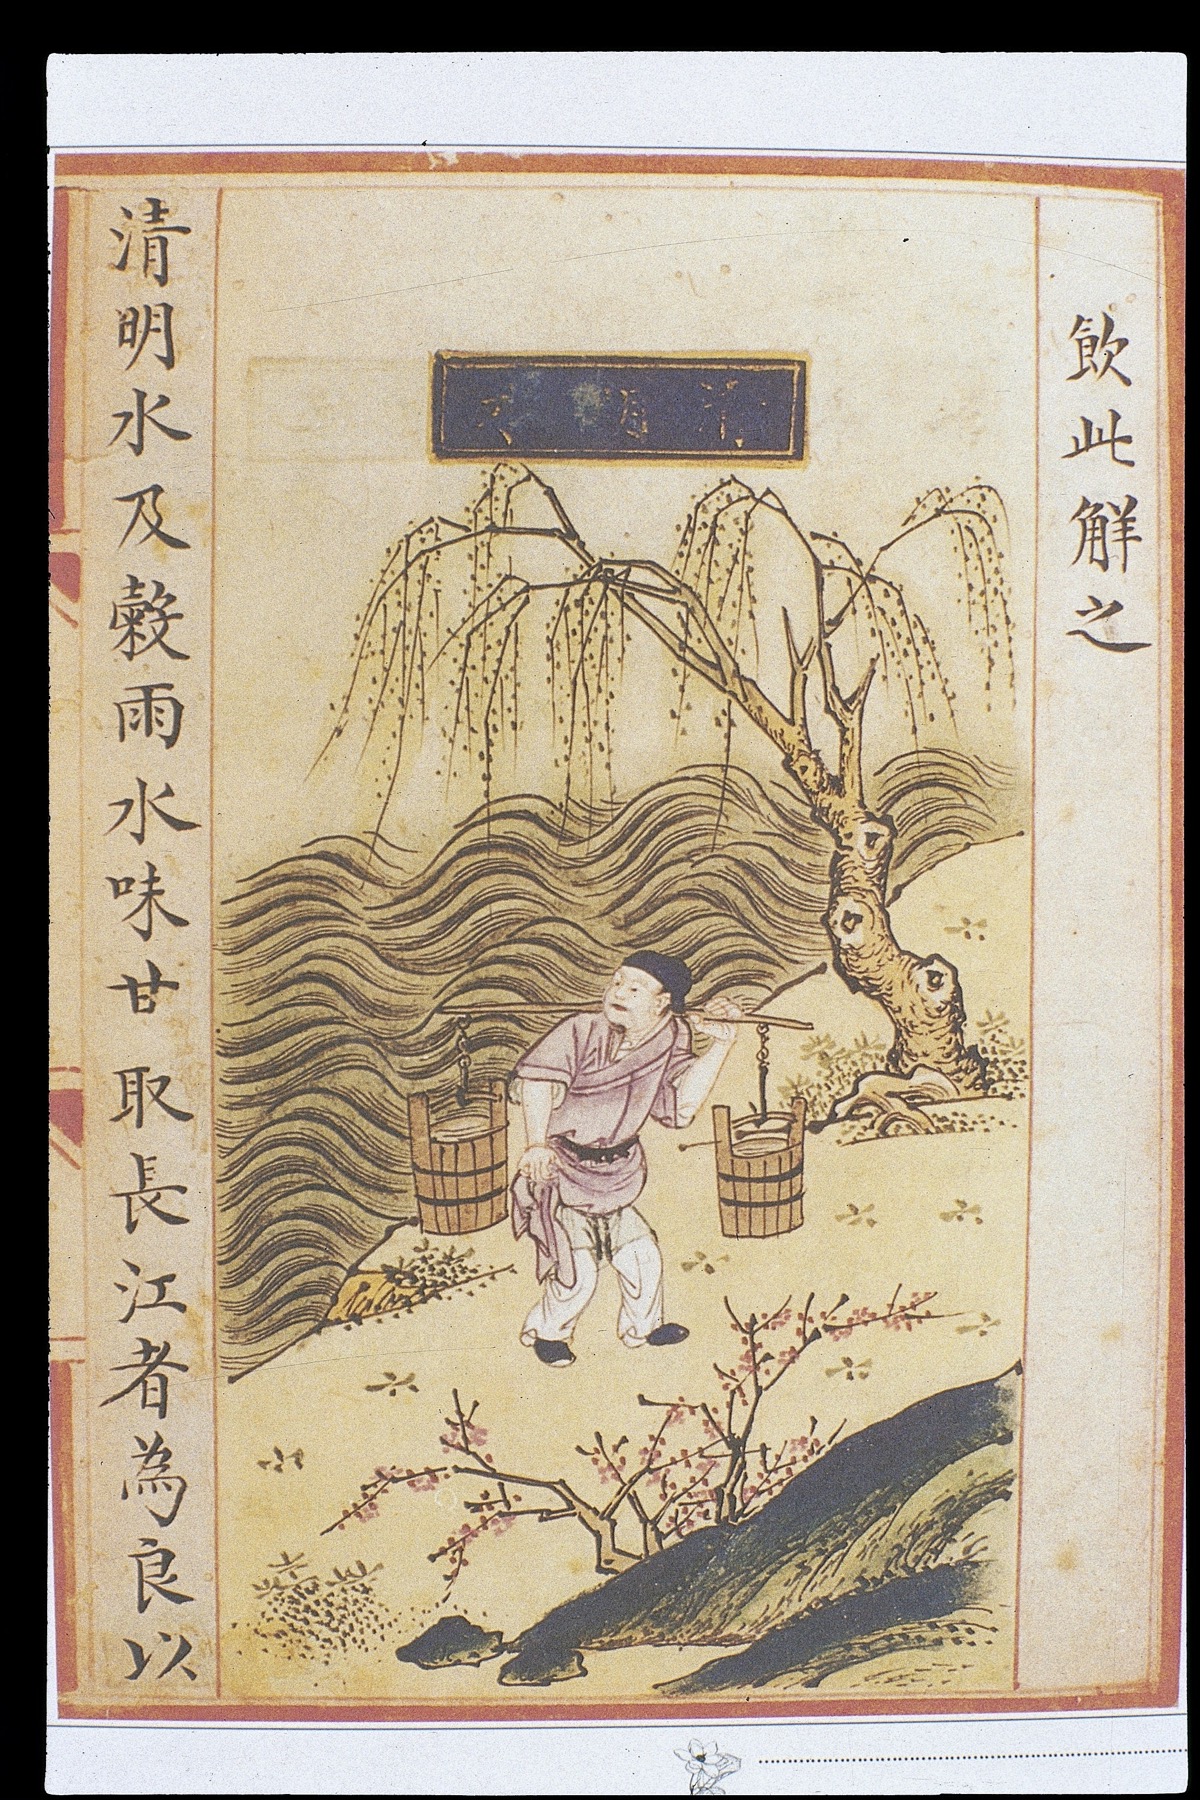 飲此觧之
清明水
清明水及穀雨水味甘取長江者為良以